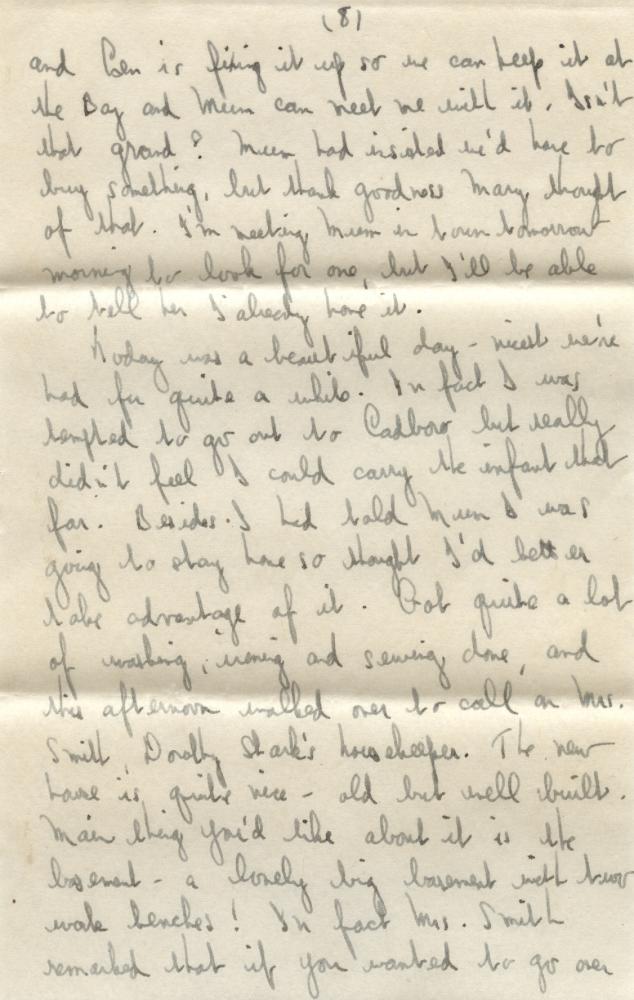 (8)
and Len is fixing it up so we can keep it at
the Bay and Mum can meet me with it. Isn't
that grand? Mum had insisted we'd have to
buy something, but thank goodness Mary thought
of that. I'm meeting Mum in town tomorrow
morning to look for one, but I'll be able
to tell her I already have it.
Today was a beautiful day - nicest we've
had for quite a while. In fact I was
tempted to go out to Cadboro but really
didn't feel I could carry the infant that
far. Besides I had told Mum I was
going to stay home so thought I'd better
take advantage of it. Got quite a lot
of washing, ironing and sewing done, and
this afternoon walked over to call on Mrs.
Smith, Dorothy Stark's housekeeper. The new
house is quite nice - old but well built.
Main thing you'd like about it is the
basement - a lovely big basement with two
work benches! In fact Mrs. Smith
remarked that if you wanted to go over